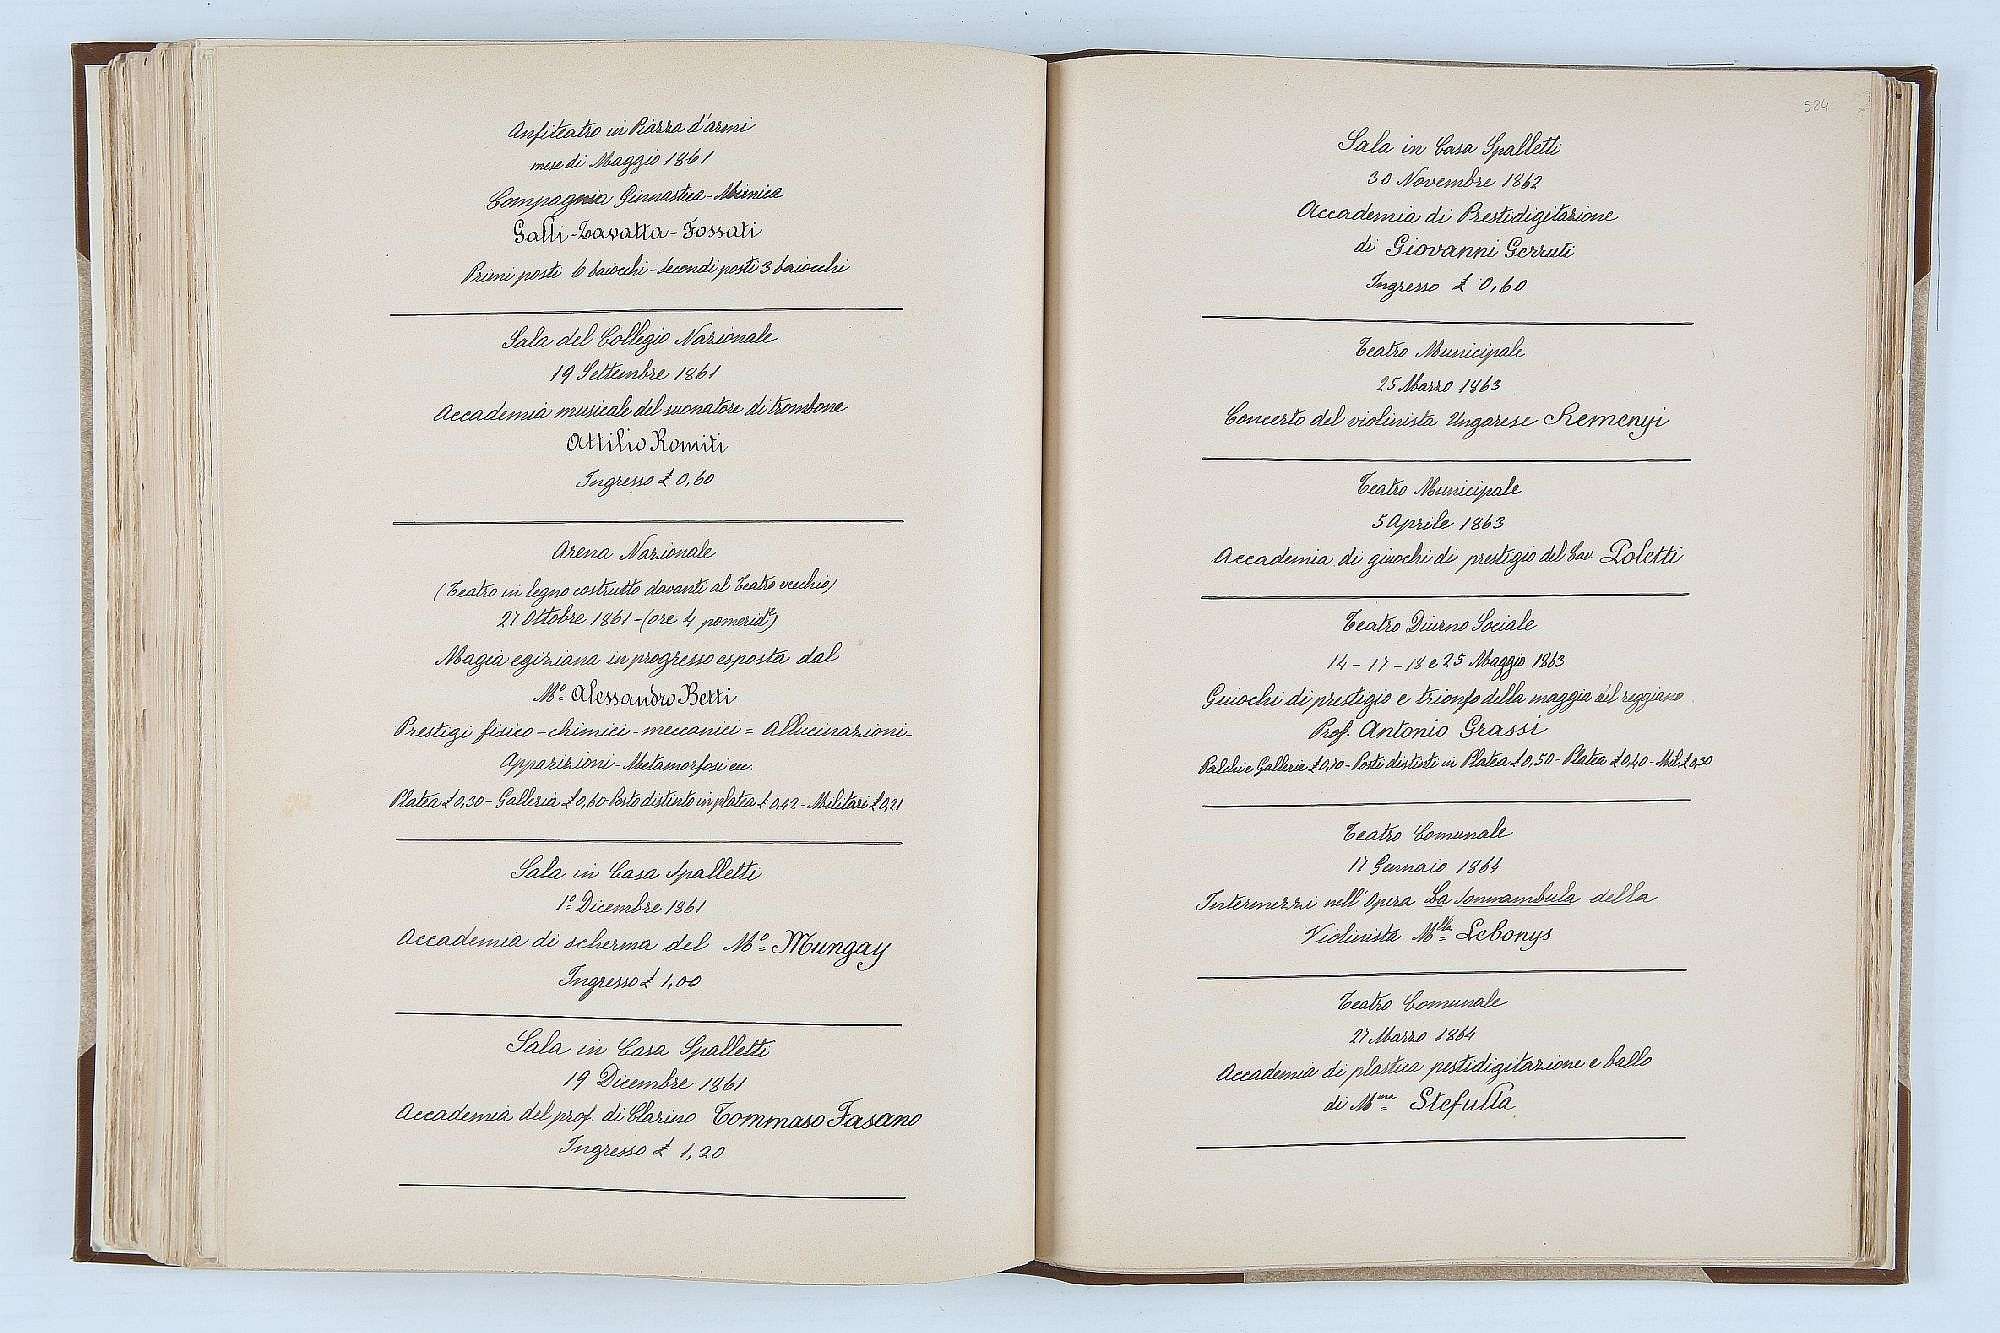 Anfiteatro in Piazza d'armi
mese di Maggio 1861
Compagnia Ginnastica-Mimica
Galli-Zavatta-Fossati
Primi posti 6 baiocchi - Secondi posti 3 baiocchi
Sala del Collegio Nazionale
19 Settembre 1861
Accademia musicale del suonatore di trombone
Attilio Romiti
Ingresso £ 0,60
Arena Nazionale
(Teatro in legno costrutto davanti al Teatro vecchio)
27 Ottobre 1861 - (ore 4 pomerid.e)
Magia egiziana in progresso esposta dal
M.o Alessandro Betti
Prestigi fisico-chimici-meccanici = Allucinazioni-
Apparizioni-Metamorfosi ecc.
Platea £ 0,30 - Galleria £ 0,60 - Posto distinto in platea £ 0,42 - Militari £ 0,21
Sala in Casa Spalletti
1.o Dicembre 1861
Accademia di scherma del M.o Mungay
Ingresso £ 1,00
Sala in Casa Spalletti
19 Dicembre 1861
Accademia del prof. di Clarino Tommaso Fasano
Ingresso £ 1,20
524
Sala in Casa Spalletti
30 Novembre 1862
Accademia di Prestidigitazione
di Giovanni Gerruti
Ingresso £ 0,60
Teatro Municipale
25 Marzo 1863
Concerto del violinista Ungarese Remenyi
Teatro Municipale
5 Aprile 1863
Accademia di giuochi di prestigio del Cav Poletti
Teatro Diurno Sociale
14 - 17 - 18 e 25 Maggio 1863
Giuochi di prestigio e trionfo della maggia del reggiano
Prof. Antonio Grassi
Palchi e Galleria £ 0,70 - Posti distinti in Platea £ 0,50 - Platea £ 0,40 - Mil. £ 0,30
Teatro Comunale
17 Gennaio 1864
Intermezzi nell'Opera La Sonnambula della
Violinista M.lla Lebonys
Teatro Comunale
27 Marzo 1864
Accademia di plastica pestidigitazione e ballo
di M.ma Stefulla